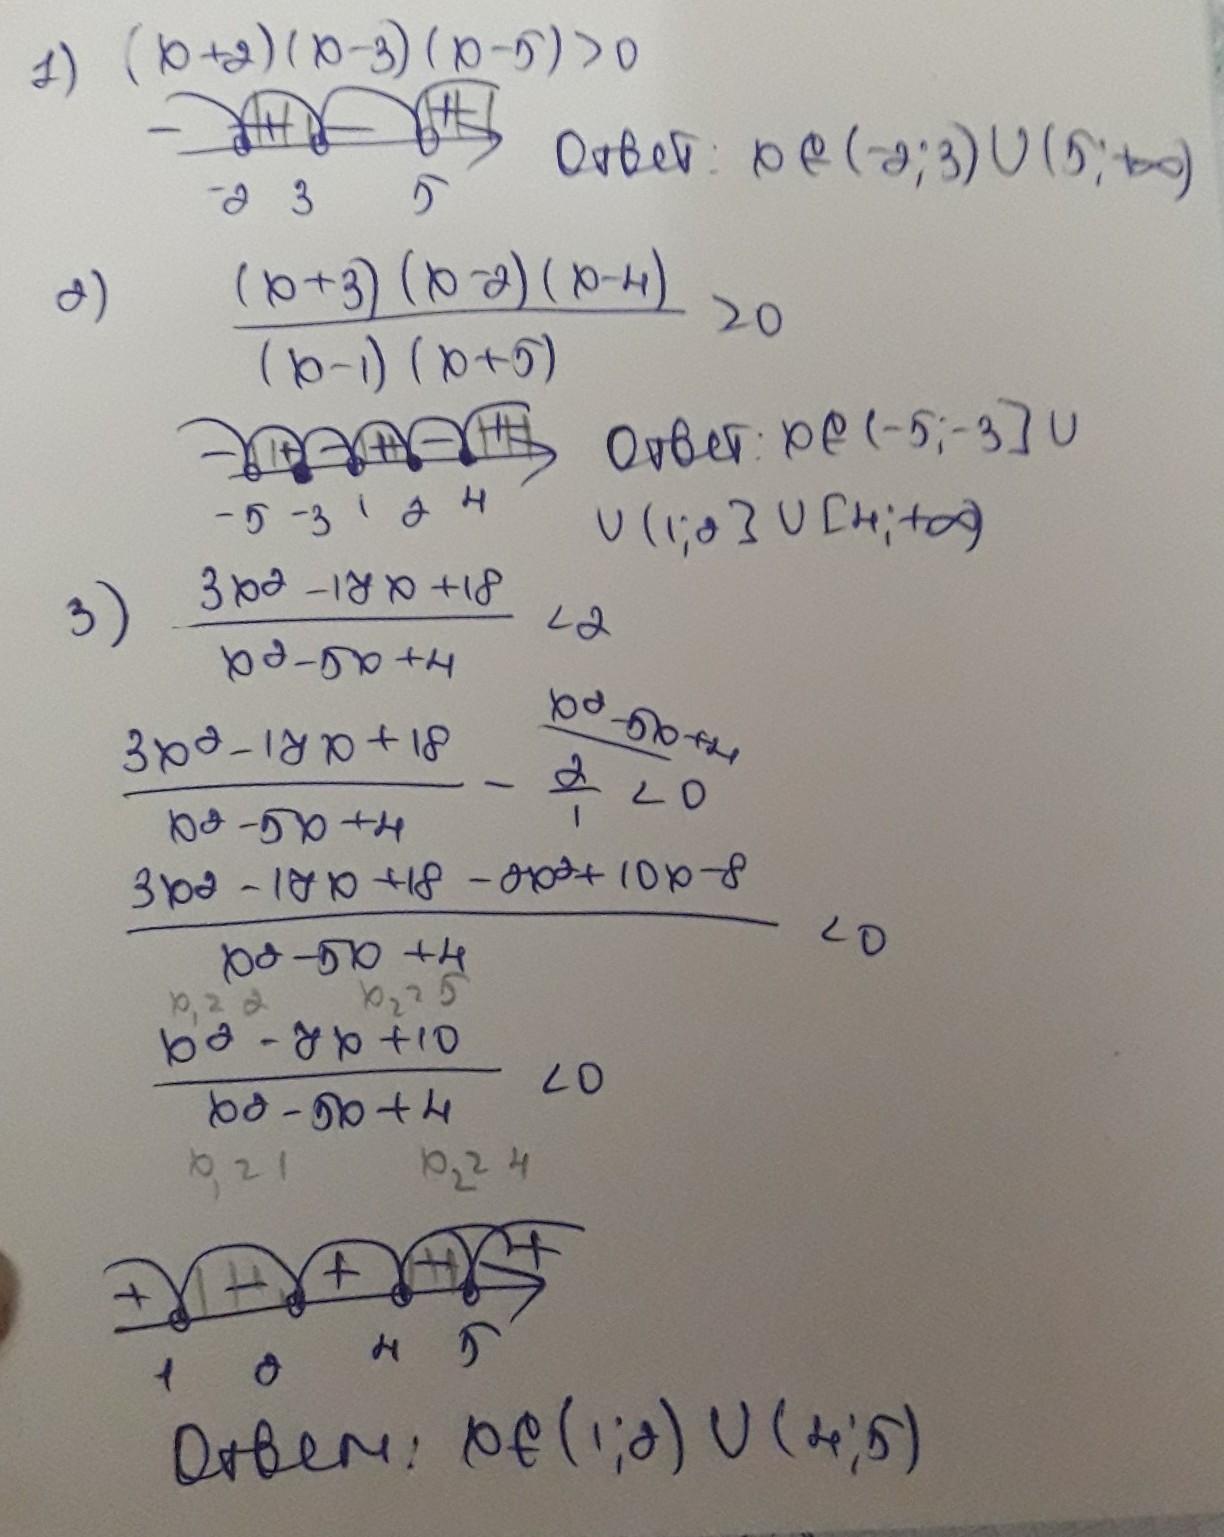 1) (x+2)(x-3)(x-5)>0
- + - +
-2 3 5
Ответ: x∈(-2;3)∪(5;+∞)
2) (x+3)(x-2)(x-4)
>0
(x-1)(x+5)
- + - + - +
-5 -3 1 2 4
Ответ: x∈(-5;-3]∪
∪(1;2]∪[4;+∞)
3) 3x2-17x+18
<2
x2-5x+4
x2-5x+4
3x2-17x+18
- 2/1 <0
x2-5x+4
3x2-17x+18-2x2+10x-8
<0
x2-5x+4
x1=2 x2=5
x2-7x+10
<0
x2-5x+4
x1=1 x2=4
+ - + - +
1 2 4 5
Ответ: x∈(1;2)∪(4;5)